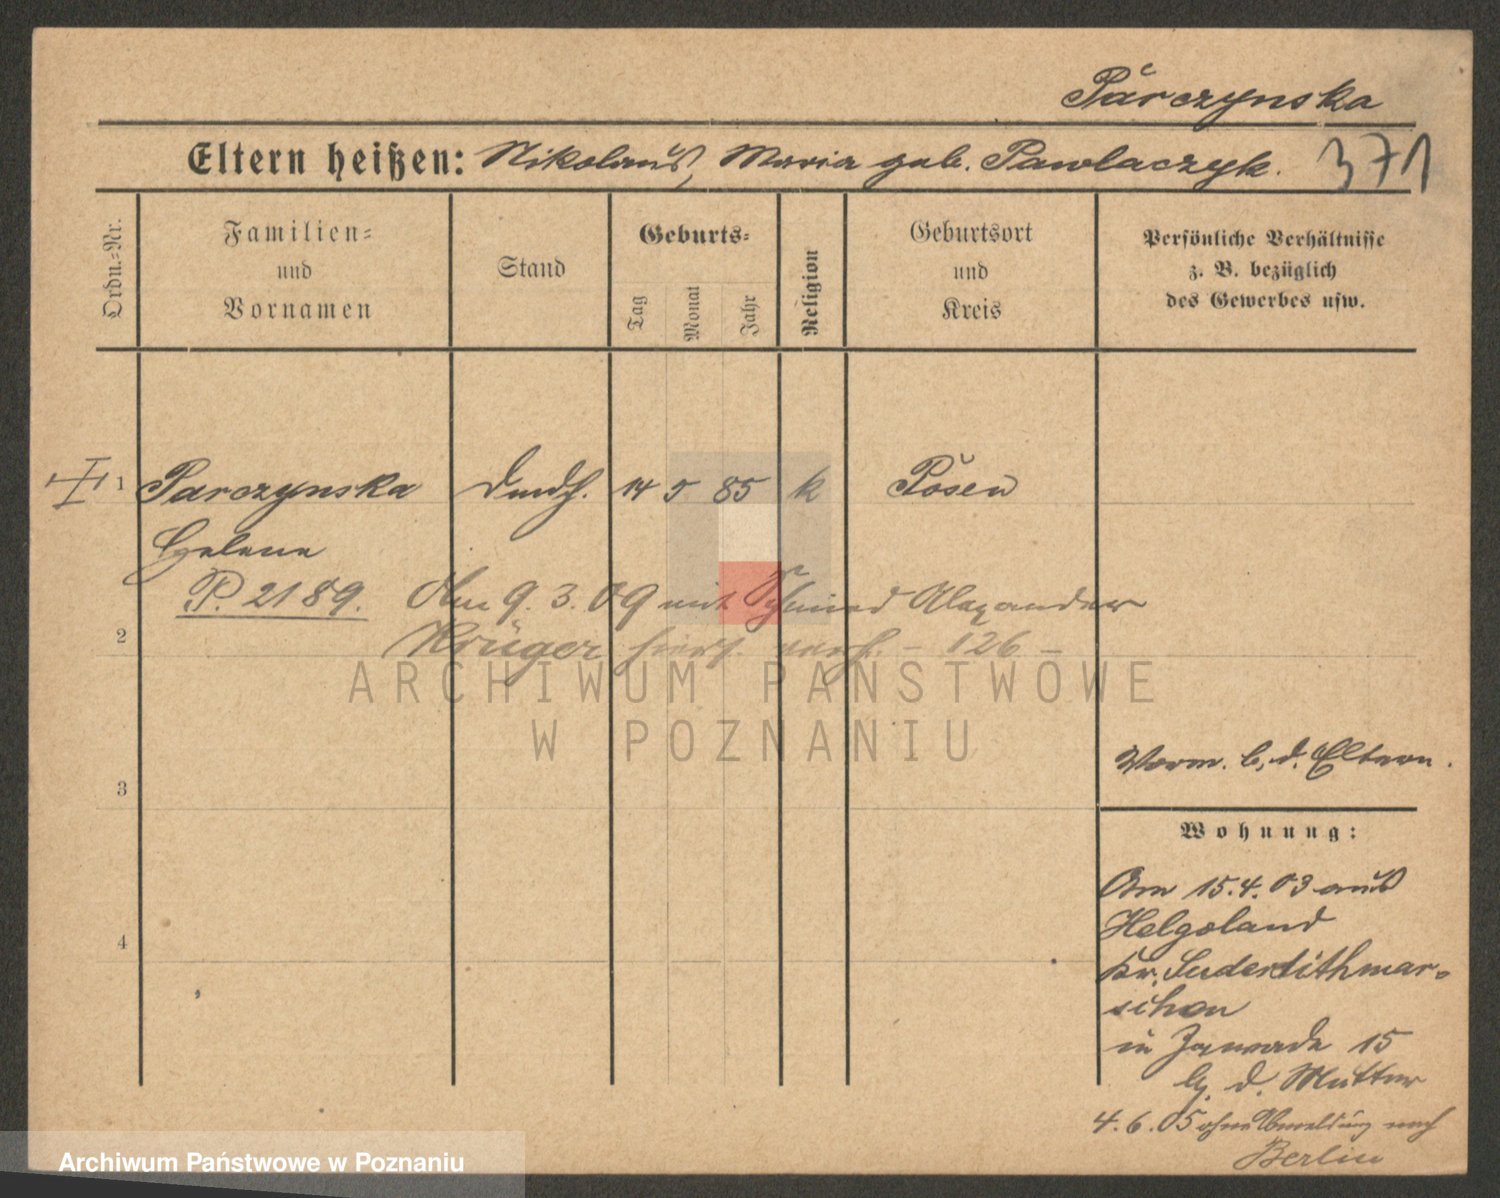 Parczynska
Eltern heißen: Nikolaus, Maria geb. Pawlaczyk.
371
Ordn.-Nr.
Familien-
und
Vornamen
Stand
Geburts-
Tag
Monat
Jahr
Religion
Geburtsort
und
Kreis
Persönliche Verhältnisse
z. B. bezüglich
des Gewerbes usw.
1 Parczynska 14 5 85 k Posen
Helene
P. 2189. Am 9. 3. 09 mit Schmied Alexander
2
Krüger hiers. verh. - 126 -
ARCHIWUM PAŃSTWOWE
W POZNANIU
Vorm. b. d. Eltern.
3
Wohnung:
Am 15.4.03 aus
Helgoland
4
Kr. Suderdithmar-
schen
in Zawade 15
b. d. Mutter
4.6.05 ohne Abmeldung nach
Berlin
Archiwum Państwowe w Poznaniu